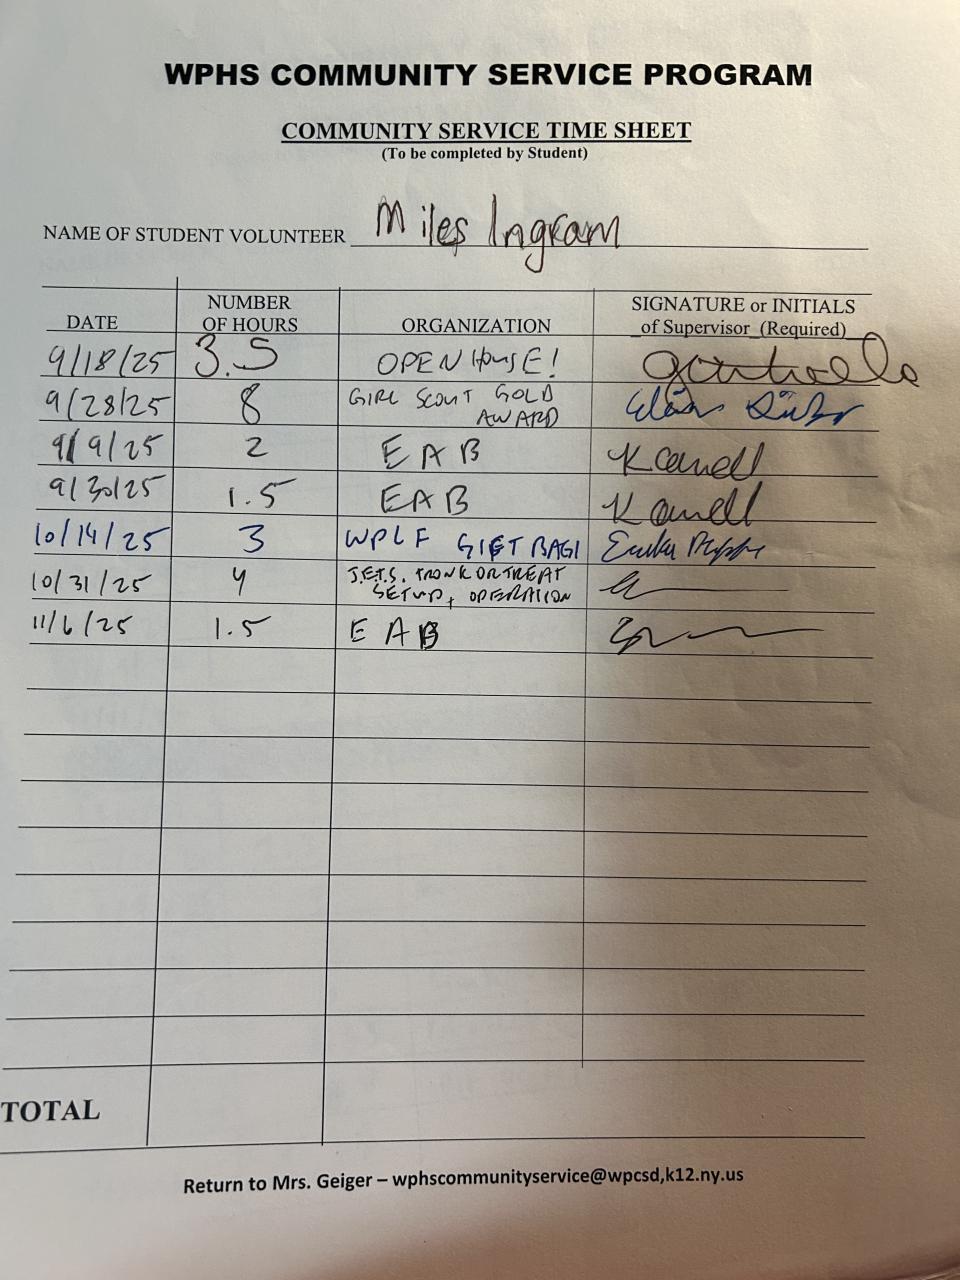 WPHS COMMUNITY SERVICE PROGRAM
COMMUNITY SERVICE TIME SHEET
(To be completed by Student)
NAME OF STUDENT VOLUNTEER Miles Ingram
DATE NUMBER OF HOURS ORGANIZATION SIGNATURE or INITIALS of Supervisor (Required)
9/18/25 3.5 OPEN HOUSE!
9/28/25 8 GIRL SCOUT GOLD AWARD
9/9/25 2 EAB
9/30/25 1.5 EAB
10/14/25 3 WPLF GIFT BAGI
10/31/25 4 J.E.T.S. TRONK OR TREAT SETUP + OPERATION
11/6/25 1.5 EAB
TOTAL
Return to Mrs. Geiger – wphscommunityservice@wpcsd,k12.ny.us